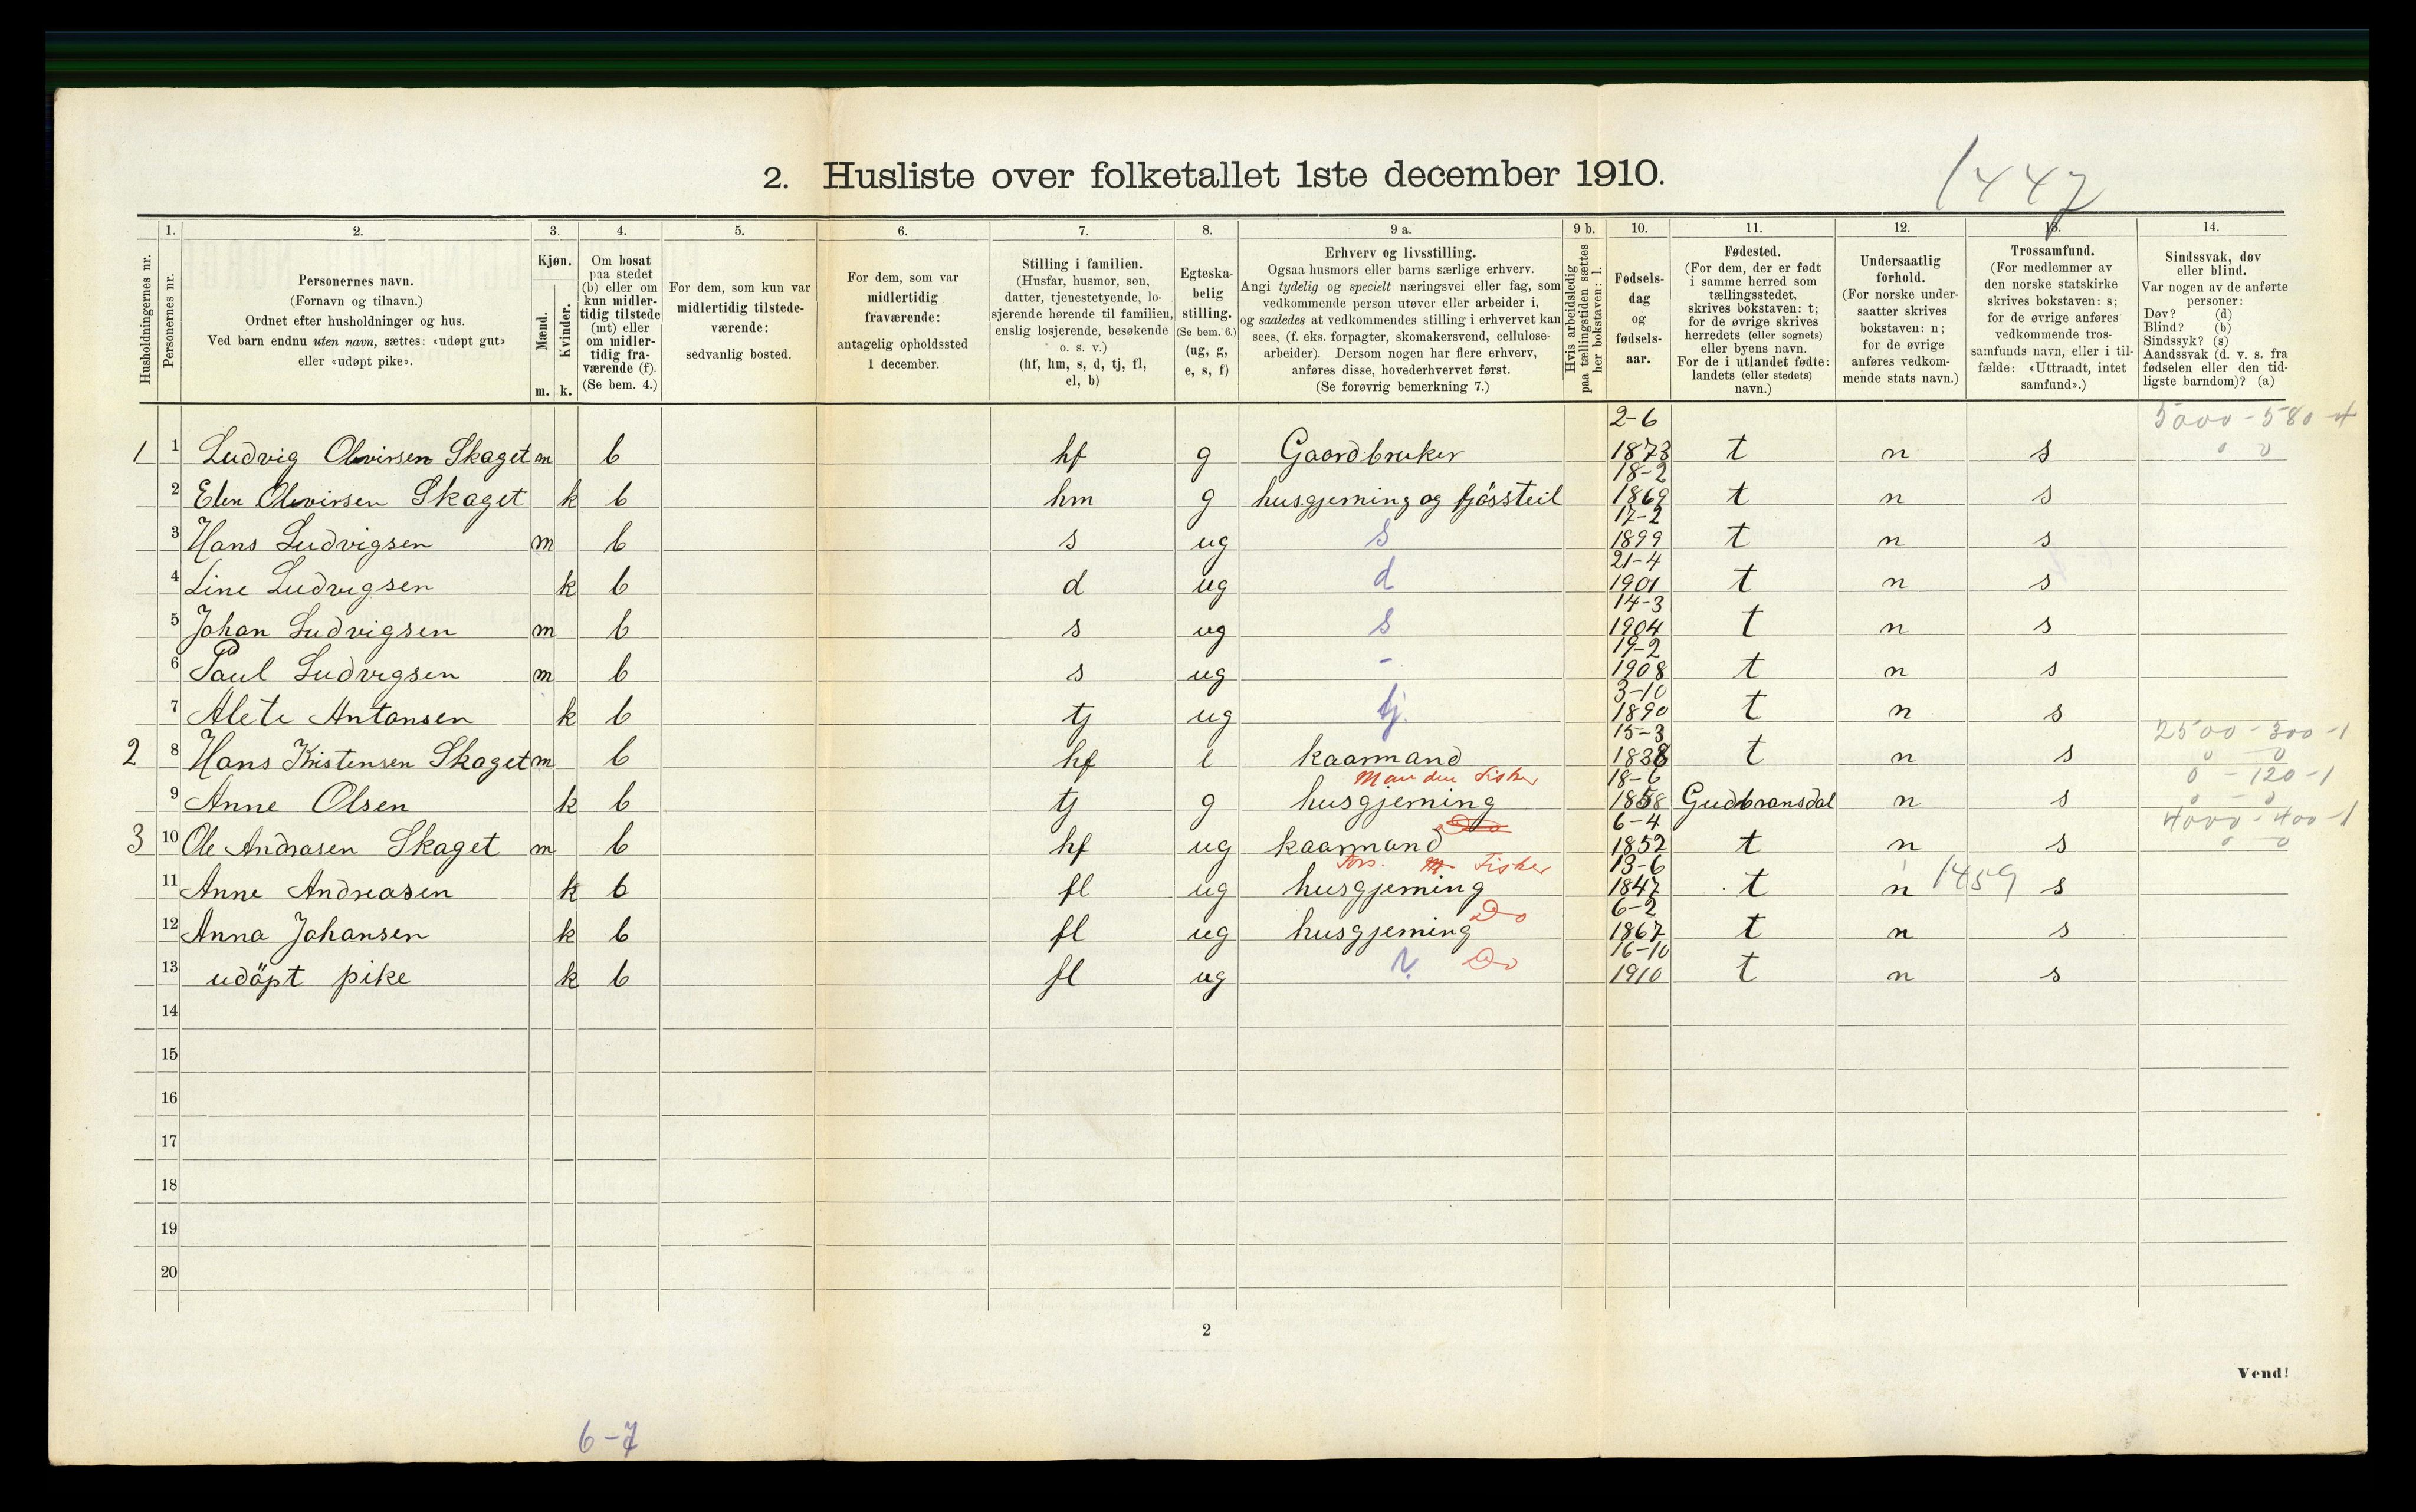 1447
2. Husliste over folketallet 1ste december 1910.
Husholdningernes nr.
1.
Personernes nr.
2.
Personernes navn.
(Fornavn og tilnavn.)
Ordnet efter husholdninger og hus.
Ved barn endnu uten navn, sættes: «udøpt gut»
eller «udøpt pike».
3.
Kjøn.
Mænd.
Kvinder.
m. k.
4.
Om bosat
paa stedet
(b) eller om
kun midler-
tidig tilstede
(mt) eller
om midler-
tidig fra-
værende (f).
(Se bem. 4.)
5.
For dem, som kun var
midlertidig tilstede-
værende:
sedvanlig bosted.
6.
For dem, som var
midlertidig
fraværende:
antagelig opholdssted
1 december.
7.
Stilling i familien.
(Husfar, husmor, søn,
datter, tjenestetyende, lo-
sjerende hørende til familien,
enslig losjerende, besøkende
o. s. v.)
(hf, hm, s, d, tj, fl,
el, b)
8.
Egteska-
belig
stilling.
(Se bem. 6.)
(ug, g,
e, s, f)
9 a.
Erhverv og livsstilling.
Ogsaa husmors eller barns særlige erhverv.
Angi tydelig og specielt næringsvei eller fag, som
vedkommende person utøver eller arbeider i,
og saaledes at vedkommendes stilling i erhvervet kan
sees, (f. eks. forpagter, skomakersvend, cellulose-
arbeider). Dersom nogen har flere erhverv,
anføres disse, hovederhvervet først.
(Se forøvrig bemerkning 7.)
9 b.
Hvis arbeidsledig
paa tællingstiden sættes
her bokstaven: l.
10.
Fødsels-
dag
og
fødsels-
aar.
11.
Fødested.
(For dem, der er født
i samme herred som
tællingsstedet,
skrives bokstaven: t;
for de øvrige skrives
herredets (eller sognets)
eller byens navn.
For de i utlandet fødte:
landets (eller stedets)
navn.)
12.
Undersaatlig
forhold.
(For norske under-
saatter skrives
bokstaven: n;
for de øvrige
anføres vedkom-
mende stats navn.)
13.
Trossamfund.
(For medlemmer av
den norske statskirke
skrives bokstaven: s;
for de øvrige anføres
vedkommende tros-
samfunds navn, eller i til-
fælde: «Uttraadt, intet
samfund».)
14.
Sindssvak, døv
eller blind.
Var nogen av de anførte
personer:
Døv? (d)
Blind? (b)
Sindssyk? (s)
Aandssvak (d. v. s. fra
fødselen eller den tid-
ligste barndom)? (a)
5000-580-4
0 0
1 1 Ludvig Olvirsen Skaget m b hf g Gaardbruker 2-6 1873 t n s
2 Elen Olvirsen Skaget k b hm g husgjerning og fjösstell 18-2 1869 t n s
3 Hans Ludvigsen m b s ug s 17-2 1899 t n s
4 Line Ludvigsen k b d ug d 21-4 1901 t n s
5 Johan Ludvigsen m b s ug s 14-3 1904 t n s
6 Paul Ludvigsen m b s ug - 19-2 1908 t n s
7 Alete Antonsen k b tj ug tj. 3-10 1890 t n s
2500-300-1
0 0
2 8 Hans Kristensen Skaget m b hf e kaarmand 15-3 1838 t n s
Manden Fisker
0-120-1
0 - 0
9 Anne Olsen k b tj g husgjerning 18-6 1858 Gudbransdal n s
Do
4000-400-1
0 0
3 10 Ole Andrasen Skaget m b hf ug kaarmand 6-4 1852 t n s
Fors. Fisker
11 Anne Andreasen k b fl ug husgjerning 13-6 1847 t n 1459 s
Do
12 Anna Johansen k b fl ug husgjerning 6-2 1867 t n s
Do
13 udöpt pike k b fl ug 16-10 1910 t n s
14
15
16
17
18
19
20
2
Vend!
6-7